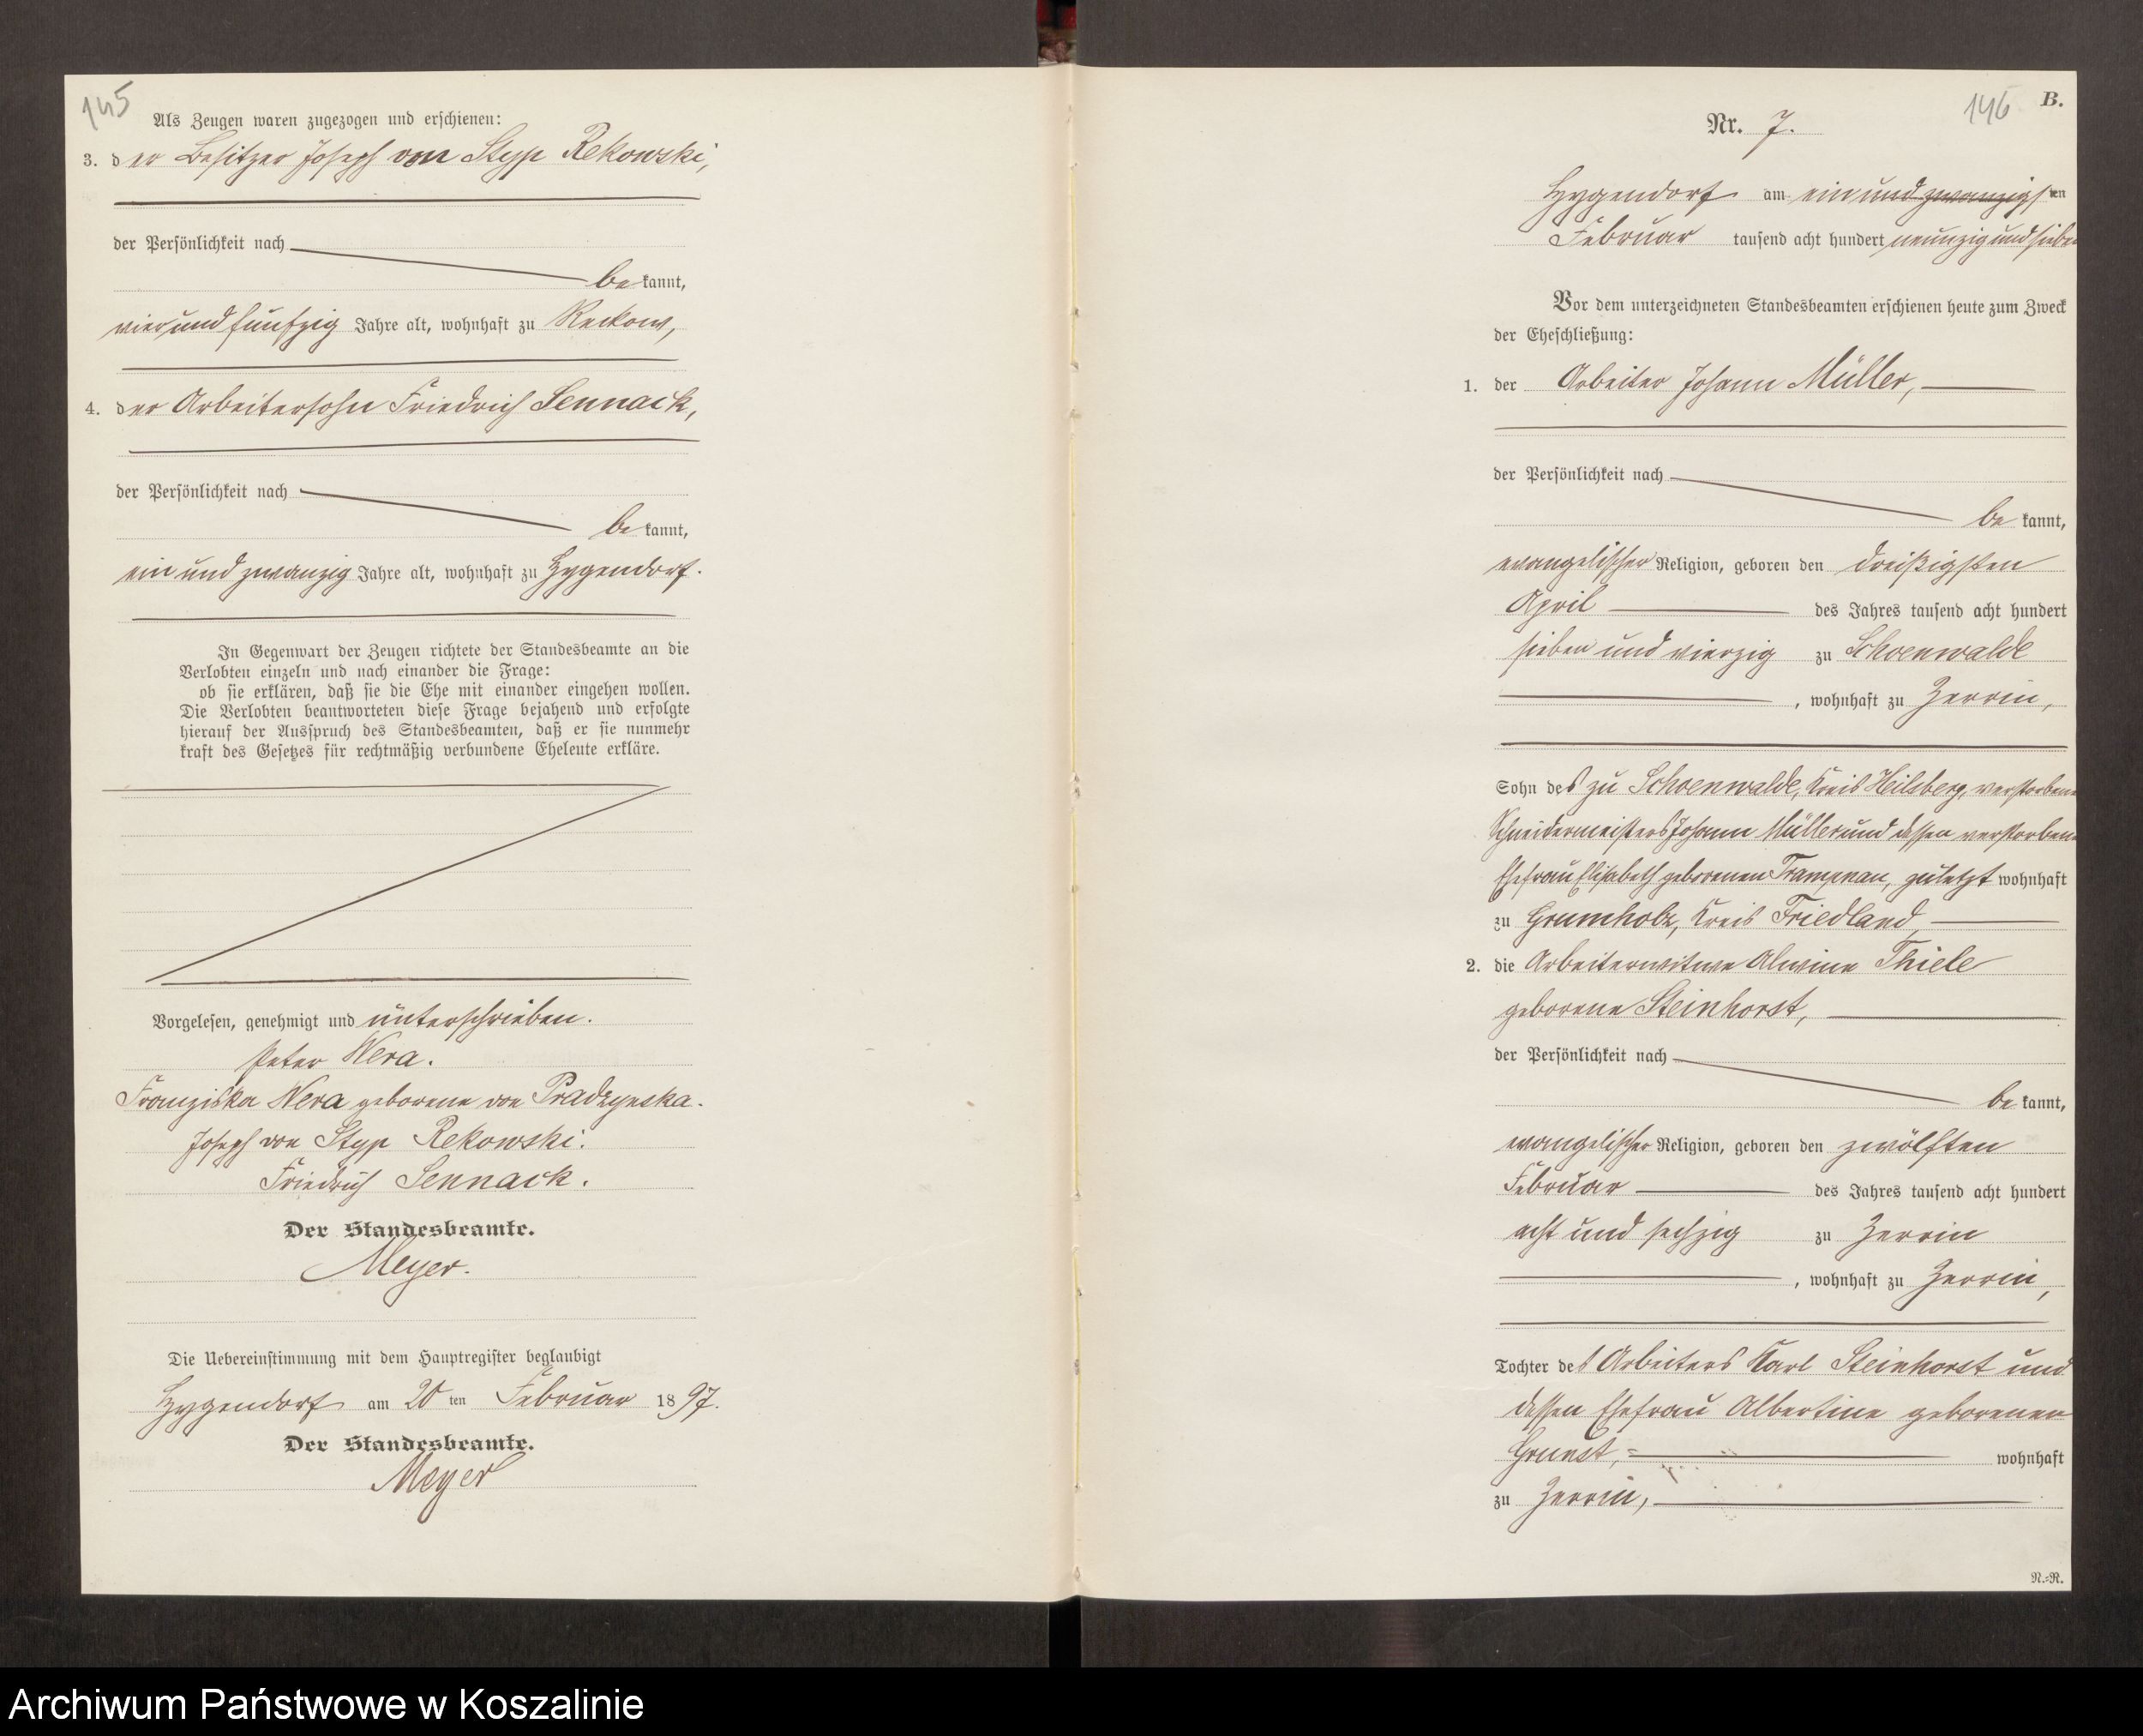 145
Als Zeugen waren zugezogen und erschienen:
3. der Besitzer Joseph von Styp Rekowski,
der Persönlichkeit nach
be kannt,
vier und fünfzig Jahre alt, wohnhaft zu Reckow,
4. der Arbeitersohn Friedrich Sennack,
der Persönlichkeit nach
be kannt,
ein und zwanzig Jahre alt, wohnhaft zu Hygendorf.
In Gegenwart der Zeugen richtete der Standesbeamte an die
Verlobten einzeln und nach einander die Frage:
ob sie erklären, daß sie die Ehe mit einander eingehen wollen.
Die Verlobten beantworteten diese Frage bejahend und erfolgte
hierauf der Ausspruch des Standesbeamten, daß er sie nunmehr
kraft des Gesetzes für rechtmäßig verbundene Eheleute erkläre.
Vorgelesen, genehmigt und unterschrieben.
Peter Wera.
Franziska Wera geborene von Pradzynska.
Joseph von Styp Rekowski.
Friedrich Sennack.
Der Standesbeamte.
Meyer.
Die Uebereinstimmung mit dem Hauptregister beglaubigt
Hygendorf am 20 ten Februar 1897.
Der Standesbeamte.
Meyer
146 B.
Nr. 7.
Hygendorf am ein und zwanzigsten
Februar tausend acht hundert neunzig und sieben
Vor dem unterzeichneten Standesbeamten erschienen heute zum Zweck
der Eheschließung:
1. der Arbeiter Johann Müller,
der Persönlichkeit nach
be kannt,
evangelischer Religion, geboren den dreißigsten
April des Jahres tausend acht hundert
sieben und vierzig zu Schoenwalde
, wohnhaft zu Zerrin,
Sohn des zu Schoenwalde, Kreis Heilsberg, verstorbenen
Schneidermeisters Johann Müller und dessen verstorbenen
Ehefrau Elisabeth geborenen Trampnau, zuletzt wohnhaft
zu Kreis Friedland,
2. die Arbeiterwitwe Alwine Thiele
geborene Steinhorst,
der Persönlichkeit nach
be kannt,
evangelischer Religion, geboren den zwölften
Februar des Jahres tausend acht hundert
acht und sechzig zu Zerrin
, wohnhaft zu Zerrin,
Tochter des Arbeiters Karl Steinhorst und
dessen Ehefrau Albertine geborenen
wohnhaft
zu Zerrin,
N.=R.
Archiwum Państwowe w Koszalinie